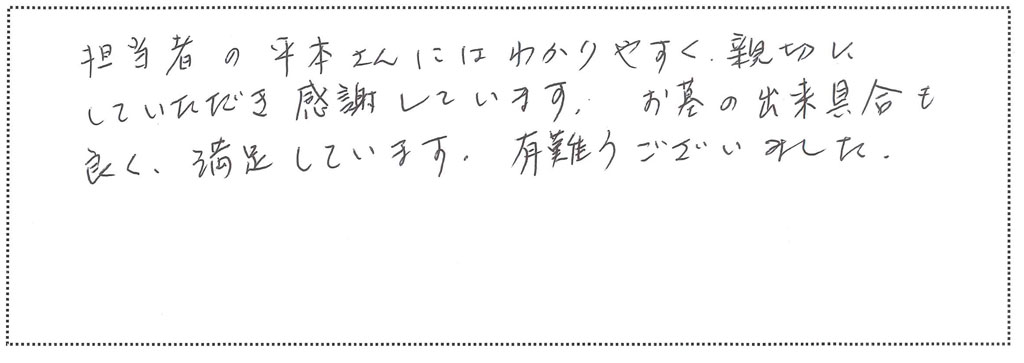 担当者の平本さんにはわかりやすく、親切に
していただき感謝しています。 お墓の出来具合も
良く、満足しています。 有難うございました。